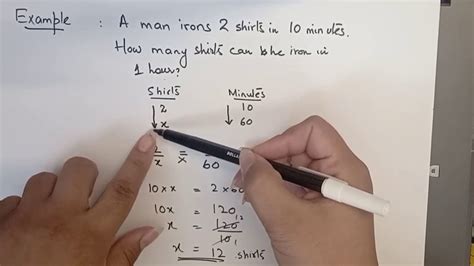 Example : A man irons 2 shirts in 10 minutes.
How many shirts can he iron in
1 hour?
Shirts Minutes
↓ 2 ↓ 10
x 60
2/x = /60
10 x x = 2 x 60
10x = 120
x = 120 12 / 10 1
x = 12 shirts